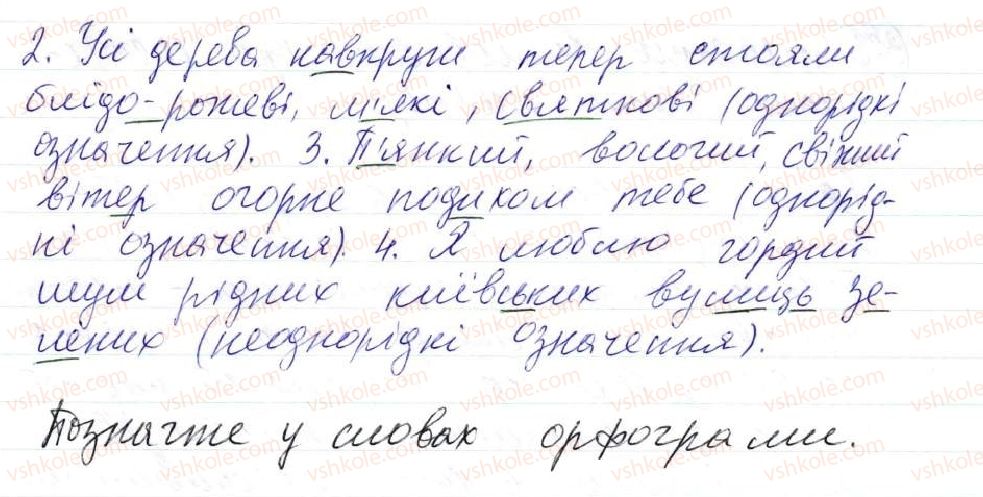 2. Усі дерева навкруги тепер стояли
блідо-рожеві, м'які, святкові (однорідні
означення). 3. П'янкий, вологий, свіжий
вітер огорне подихом тебе (однорід-
ні означення). 4. Я люблю гордий
шум рідних київських вулиць зе-
лених (неоднорідні означення).
Позначте у словах орфограми.